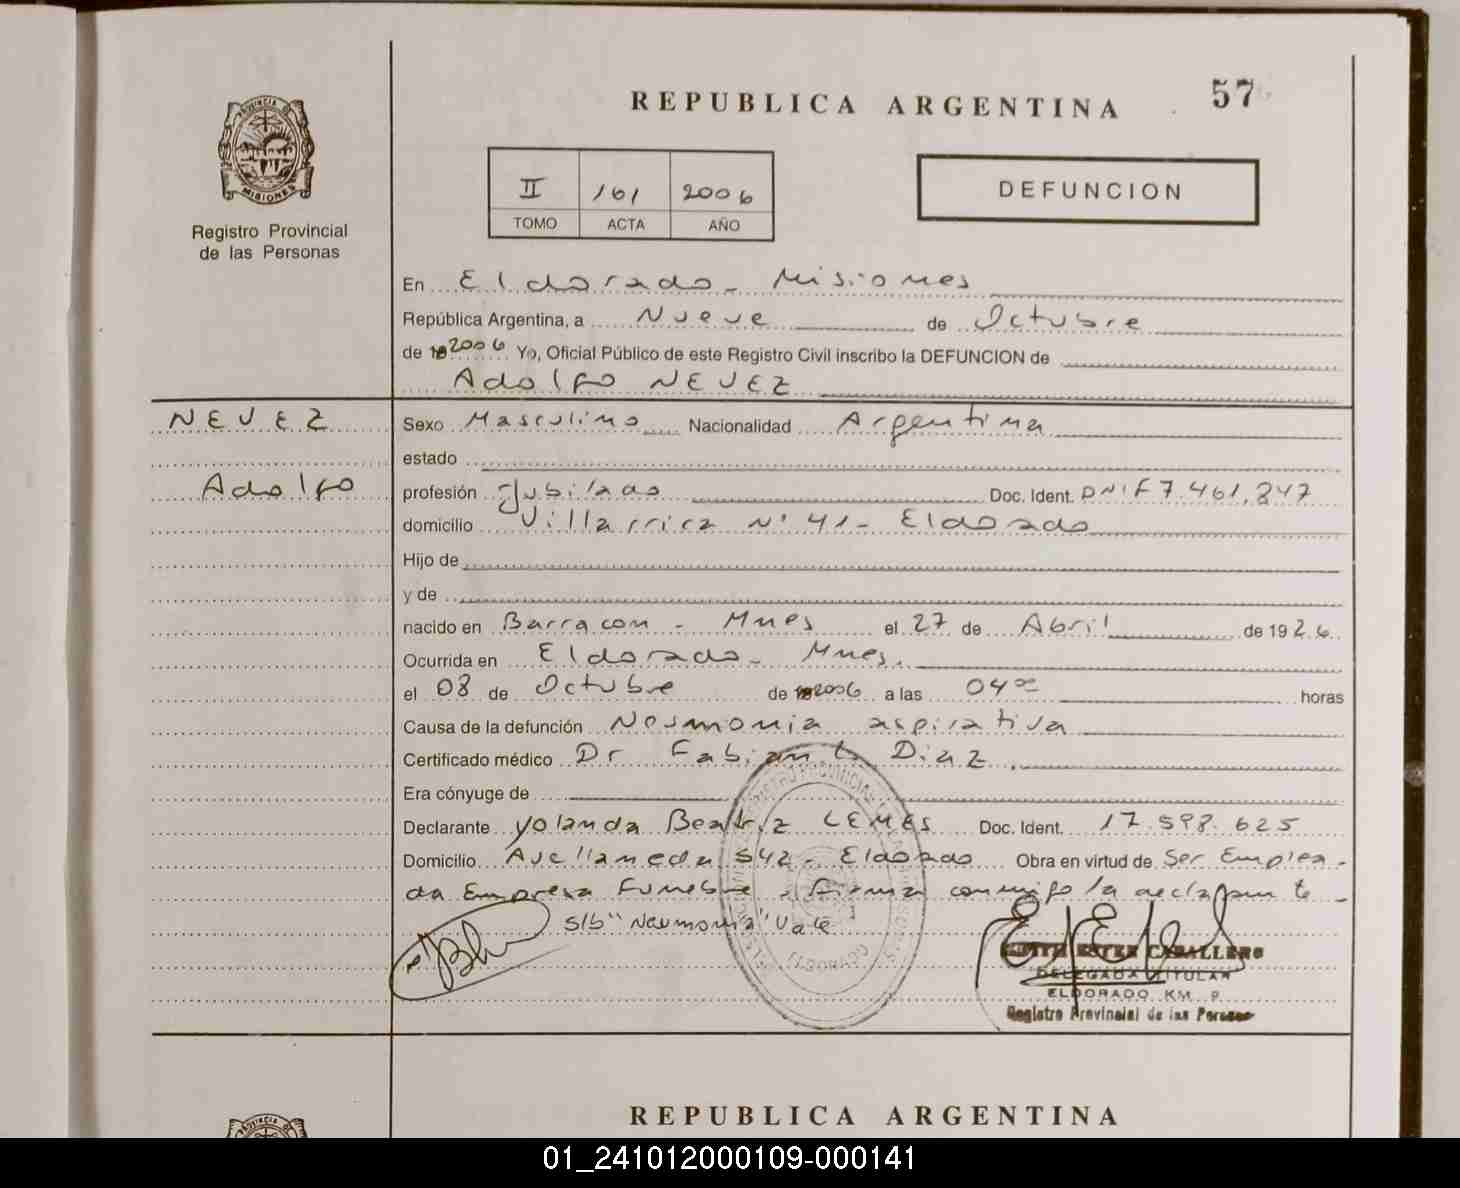 57
REPUBLICA ARGENTINA
PROVINCIA DE
MISIONES
Registro Provincial
de las Personas
II 161 2006
TOMO ACTA AÑO
DEFUNCION
En Eldorado - Misiones
República Argentina, a Nueve de Octubre
de 2006 Yo, Oficial Público de este Registro Civil inscribo la DEFUNCION de
Adolfo NEVEZ
NEVEZ
Adolfo
Sexo Masculino Nacionalidad Argentina
estado
profesión Jubilado Doc. Ident. DNI F 7.461.847
domicilio Villarrica N° 41 - Eldorado
Hijo de
y de
nacido en Barracon - Mnes el 27 de Abril de 1926
Ocurrida en Eldorado - Mnes.
el 08 de Octubre de 2006 a las 04 00 horas
Causa de la defunción Nesmonia aspirativa
Certificado médico Dr Fabian L Diaz
Era cónyuge de
Declarante Yolanda Beatriz LEMES Doc. Ident. 17.598.625
Domicilio Avellaneda 542 - Eldorado Obra en virtud de Ser Emplea-
da Empresa Funebre, firma conmigo la declarante -
S/b "Neumonia" Vale
ELDORADO
CABALLERO
DELEGADA TITULAR
ELDORADO KM. 9
Registro Provincial de las Personas
REPUBLICA ARGENTINA
01_241012000109-000141